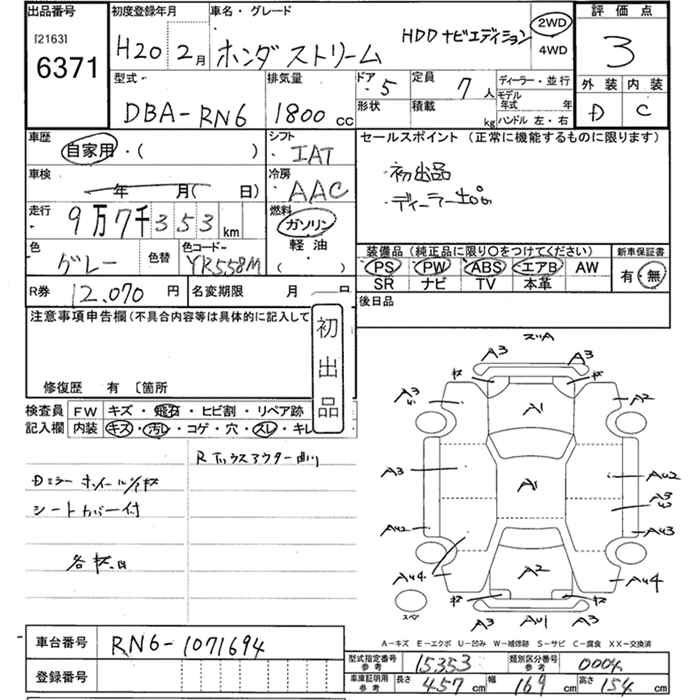 出品番号
[2163]
6371
初度登録年月
H20 2月
車名・グレード
ホンダ ストリーム HDDナビエディション
2WD
4WD
評価点
3
外装 内装
D C
型式
DBA-RN6
排気量
1800 cc
ドア
5
形状
定員
7 人
積載
kg
ディーラー・並行
モデル年式 年
ハンドル 左・右
車歴
自家用・( )
シフト
IAT
セールスポイント(正常に機能するものに限ります)
初出品
車検
年 月( 日)
冷房
AAC
走行
9万7千353 km
燃料
ガソリン
軽油
( )
色
グレー
色替
色コード
YR558M
装備品(純正品に限り〇をつけてください)
新車保証書
PS PW ABS エアB AW
SR ナビ TV 本革
有・無
R券
12,070 円
名変期限 月 日
後日品
注意事項申告欄(不具合内容等は具体的に記入して
初出品
修復歴 有 〔箇所
検査員記入欄
FW キズ・飛石・ヒビ割・リペア跡
内装 キズ・汚レ・コゲ・穴・スレ・キレ
シートカバー付
A3 A3
A3 A1 A2
A3 A1 AU2
AU2 AU3
AU4 A2 AU4
A3 AU1 A3
スペア
A-キズ E-エクボ U-凹み W-補修跡 S-サビ C-腐食 XX-交換済
車台番号
RN6-1071694
型式指定番号 参考
15353
類別区分番号 参考
0004
登録番号
車庫証明用 参考
長さ 457 cm 幅 169 cm 高さ 154 cm